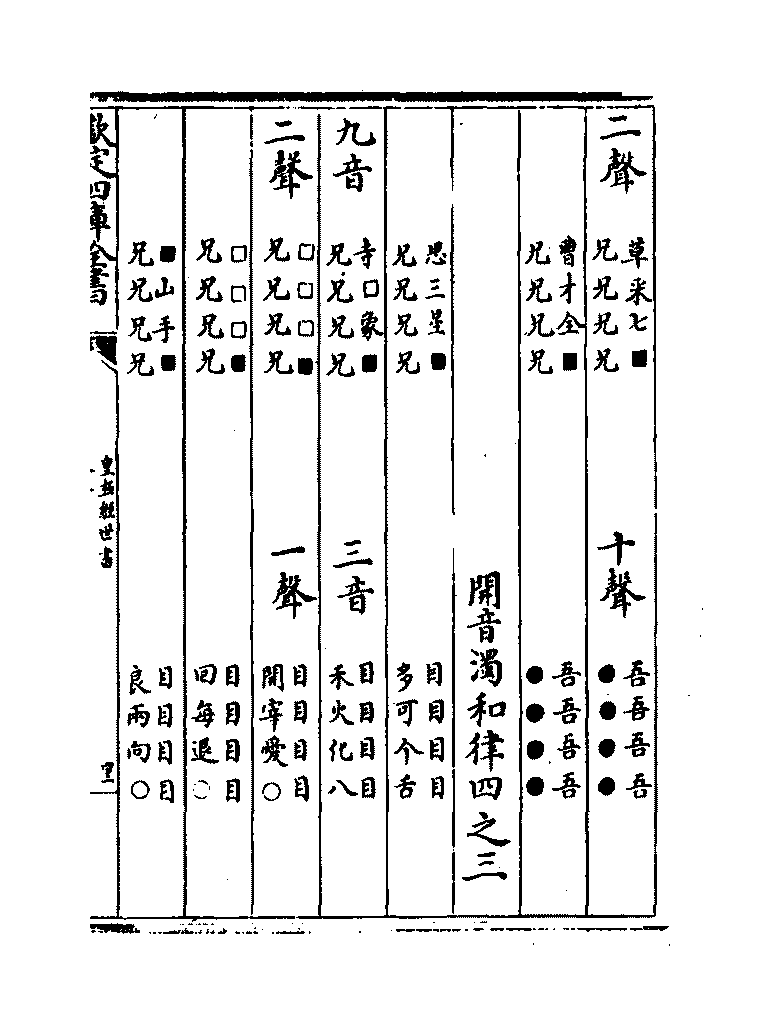 二聲
草采七■
兄兄兄兄
十聲
吾吾吾吾
●●●●
曹才全■
兄兄兄兄
吾吾吾吾
●●●●
開音濁和律四之三
思三星■
兄兄兄兄
目目目目
多可个舌
九音
寺□象■
兄兄兄兄
三音
目目目目
禾火化八
二聲
□□□■
兄兄兄兄
一聲
目目目目
開宰愛○
□□□■
兄兄兄兄
目目目目
回每退○
■山手■
兄兄兄兄
目目目目
良兩向○
欽定四庫全書
皇極經世書